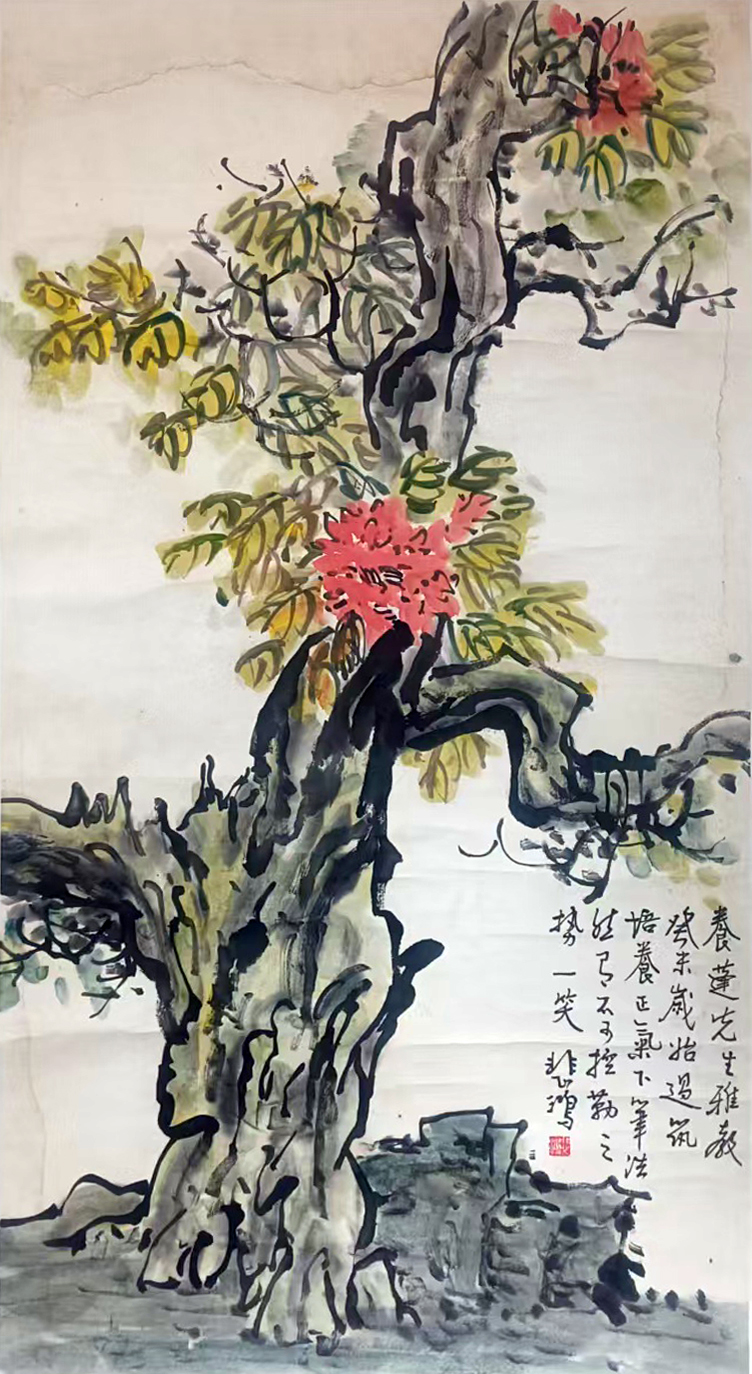 養蓬先生雅教
癸未歲始過筑
培養正氣下筆浩
然有不可控勒之
勢一笑 悲鴻